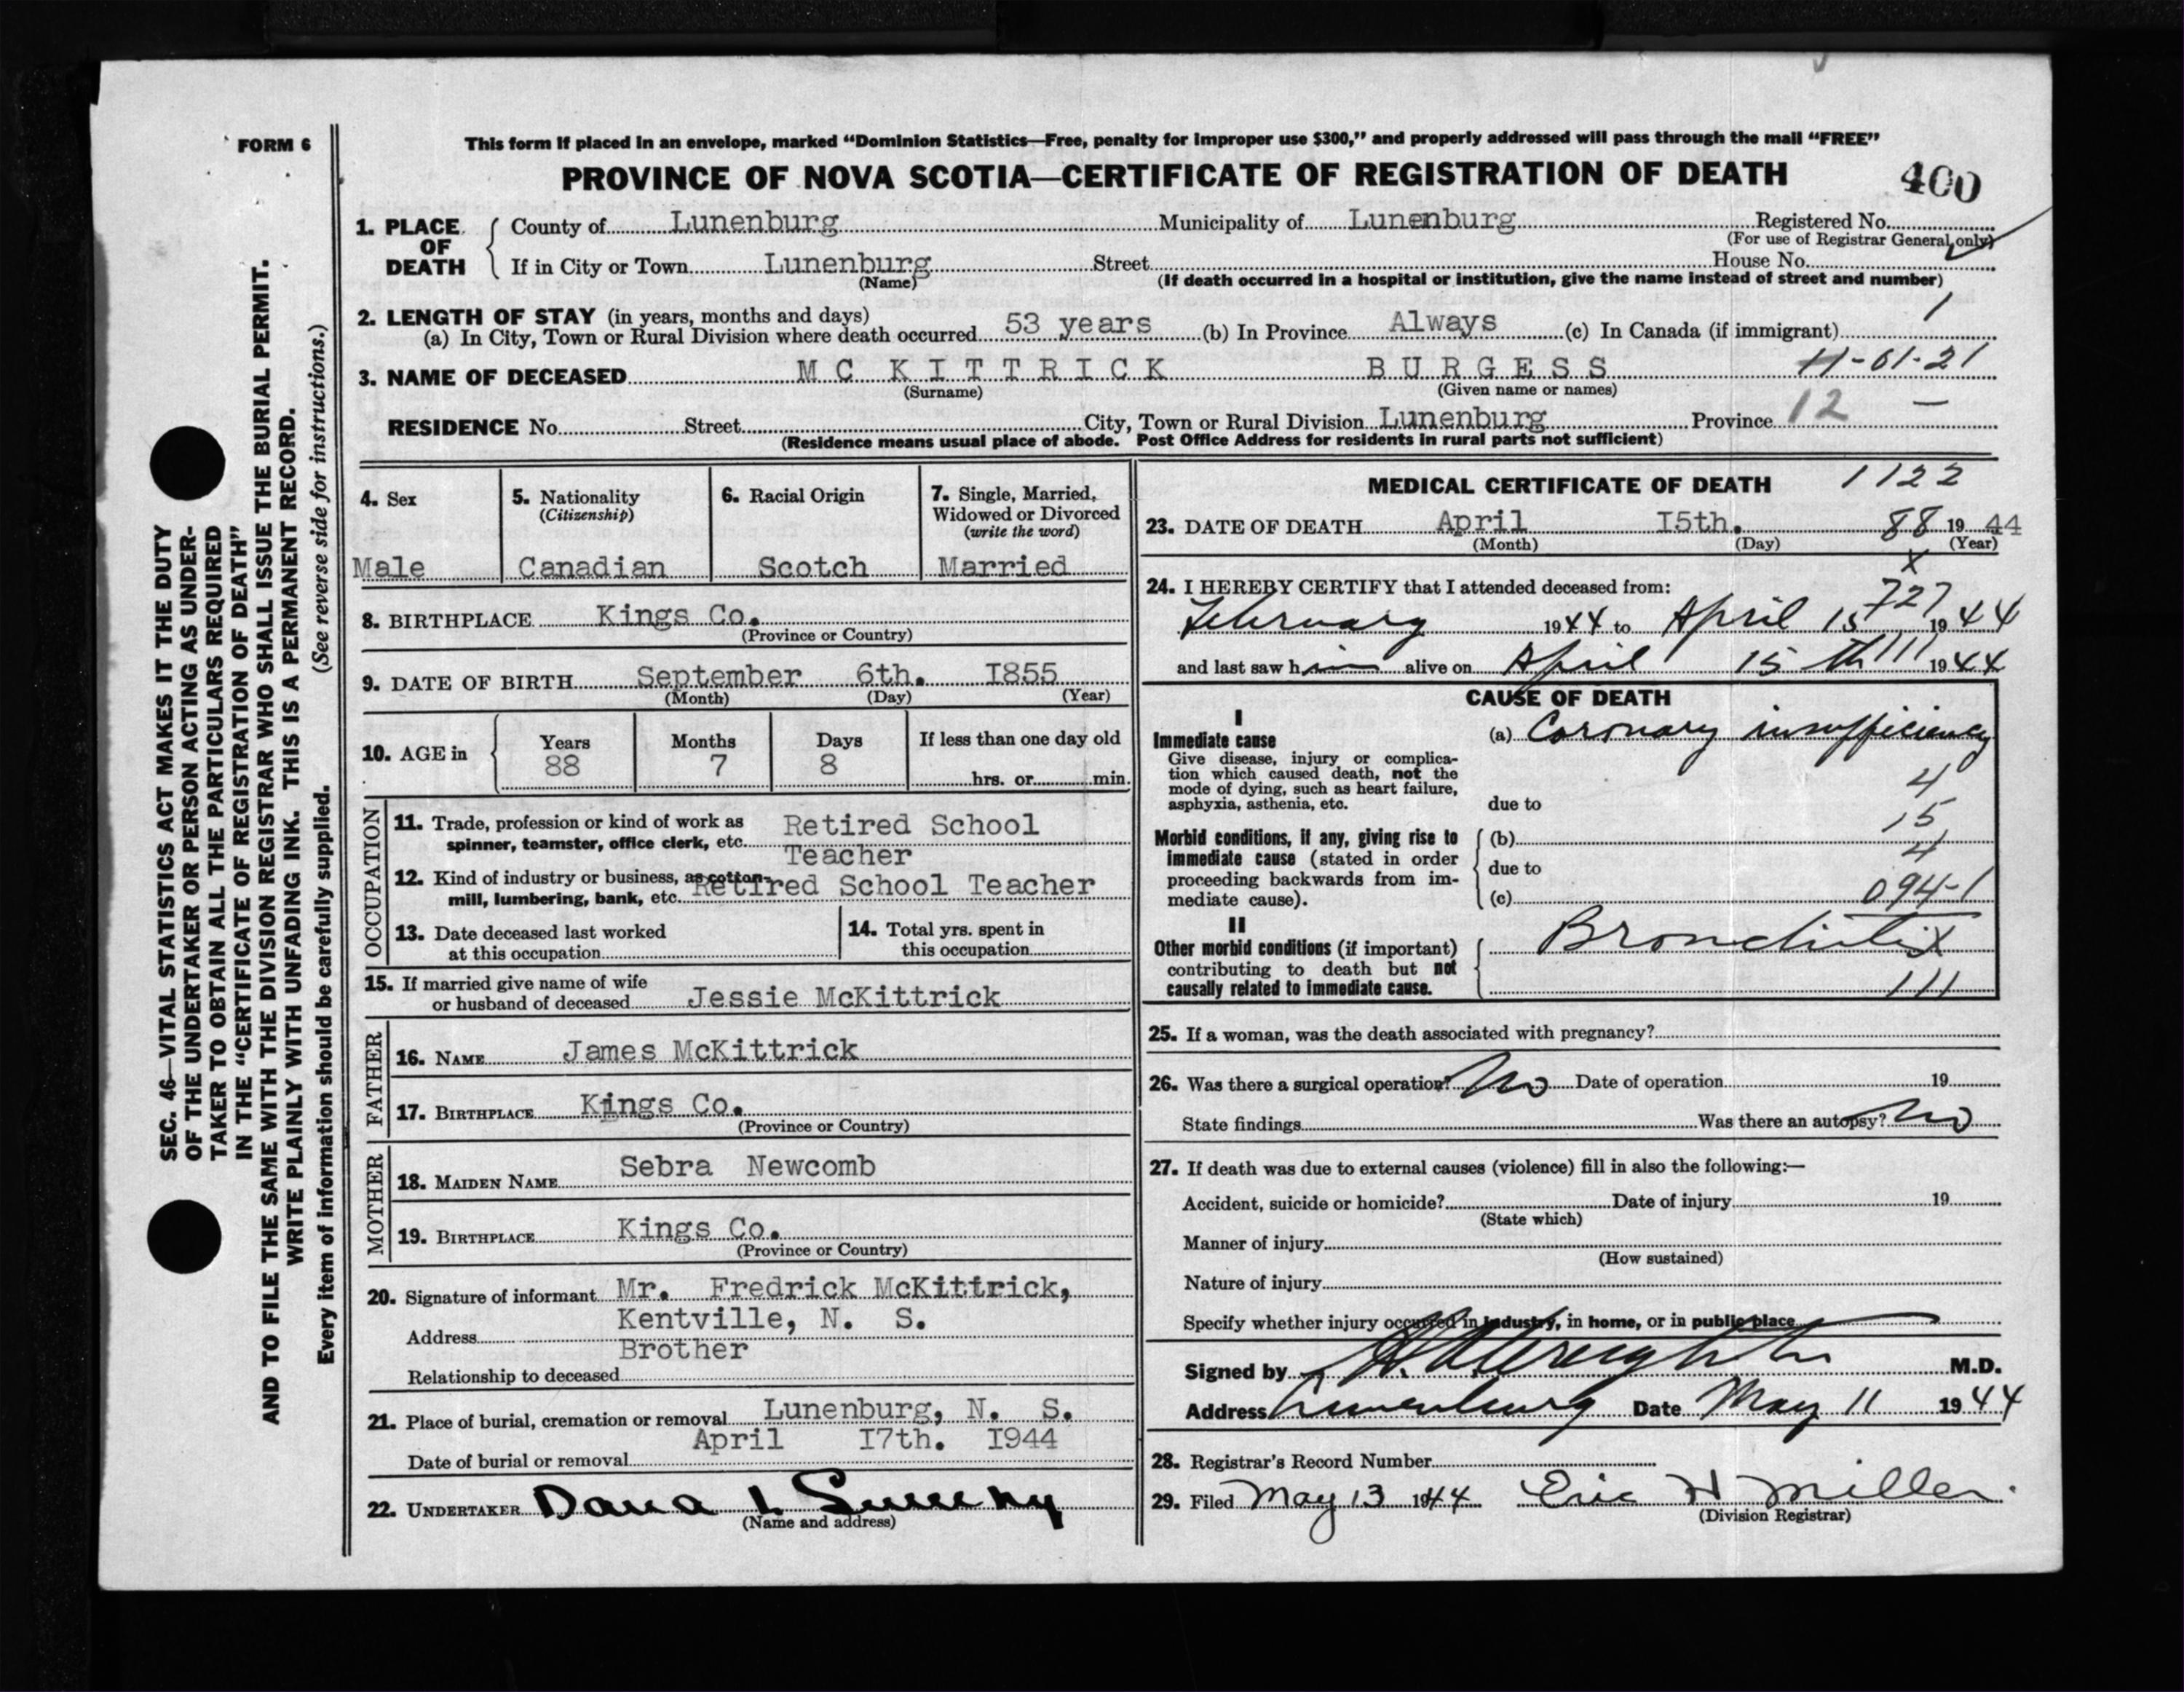 FORM 6
This form if placed in an envelope, marked “Dominion Statistics—Free, penalty for improper use $300,” and properly addressed will pass through the mail “FREE”
PROVINCE OF NOVA SCOTIA—CERTIFICATE OF REGISTRATION OF DEATH
400
1. PLACE OF DEATH
County of Lunenburg Municipality of Lunenburg Registered No.
(For use of Registrar General only)
If in City or Town Lunenburg Street House No.
(Name) (If death occurred in a hospital or institution, give the name instead of street and number)
2. LENGTH OF STAY (in years, months and days)
(a) In City, Town or Rural Division where death occurred 53 years (b) In Province Always (c) In Canada (if immigrant)
3. NAME OF DECEASED MC KITTRICK BURGESS 11-01-21
(Surname) (Given name or names)
RESIDENCE No. Street City, Town or Rural Division Lunenburg Province 12
(Residence means usual place of abode. Post Office Address for residents in rural parts not sufficient)
4. Sex
Male
5. Nationality
(Citizenship)
Canadian
6. Racial Origin
Scotch
7. Single, Married,
Widowed or Divorced
(write the word)
Married
8. BIRTHPLACE Kings Co.
(Province or Country)
9. DATE OF BIRTH September 6th. I855
(Month) (Day) (Year)
10. AGE in
Years Months Days If less than one day old
88 7 8 hrs. or min.
OCCUPATION
11. Trade, profession or kind of work as
spinner, teamster, office clerk, etc. Retired School
Teacher
12. Kind of industry or business, as cotton-
mill, lumbering, bank, etc. Retired School Teacher
13. Date deceased last worked
at this occupation
14. Total yrs. spent in
this occupation
15. If married give name of wife
or husband of deceased Jessie McKittrick
FATHER
16. NAME James McKittrick
17. BIRTHPLACE Kings Co.
(Province or Country)
MOTHER
18. MAIDEN NAME Sebra Newcomb
19. BIRTHPLACE Kings Co.
(Province or Country)
20. Signature of informant Mr. Fredrick McKittrick,
Address Kentville, N. S.
Relationship to deceased Brother
21. Place of burial, cremation or removal Lunenburg, N. S.
Date of burial or removal April I7th. I944
22. UNDERTAKER Dana L Sweeny
(Name and address)
MEDICAL CERTIFICATE OF DEATH 1122
23. DATE OF DEATH April I5th. 88 19 44
(Month) (Day) (Year)
24. I HEREBY CERTIFY that I attended deceased from:
727
February 1944 to April 15 1944
and last saw him alive on April 15th 111 1944
CAUSE OF DEATH
I
Immediate cause
Give disease, injury or complica-
tion which caused death, not the
mode of dying, such as heart failure,
asphyxia, asthenia, etc.
(a) Coronary insufficiency
4
due to
15
Morbid conditions, if any, giving rise to
immediate cause (stated in order
proceeding backwards from im-
mediate cause).
(b)
4
due to
(c) 094-1
II
Other morbid conditions (if important)
contributing to death but not
causally related to immediate cause.
Bronchitis
111
25. If a woman, was the death associated with pregnancy?
26. Was there a surgical operation? No Date of operation 19
State findings Was there an autopsy? No
27. If death was due to external causes (violence) fill in also the following:—
Accident, suicide or homicide? Date of injury 19
(State which)
Manner of injury
(How sustained)
Nature of injury
Specify whether injury occurred in industry, in home, or in public place
Signed by M.D.
Address Lunenburg Date May 11 1944
28. Registrar's Record Number
29. Filed May 13 1944 Eric H Miller.
(Division Registrar)
SEC. 46—VITAL STATISTICS ACT MAKES IT THE DUTY
OF THE UNDERTAKER OR PERSON ACTING AS UNDER-
TAKER TO OBTAIN ALL THE PARTICULARS REQUIRED
IN THE “CERTIFICATE OF REGISTRATION OF DEATH”
AND TO FILE THE SAME WITH THE DIVISION REGISTRAR WHO SHALL ISSUE THE BURIAL PERMIT.
WRITE PLAINLY WITH UNFADING INK. THIS IS A PERMANENT RECORD.
Every item of information should be carefully supplied. (See reverse side for instructions.)